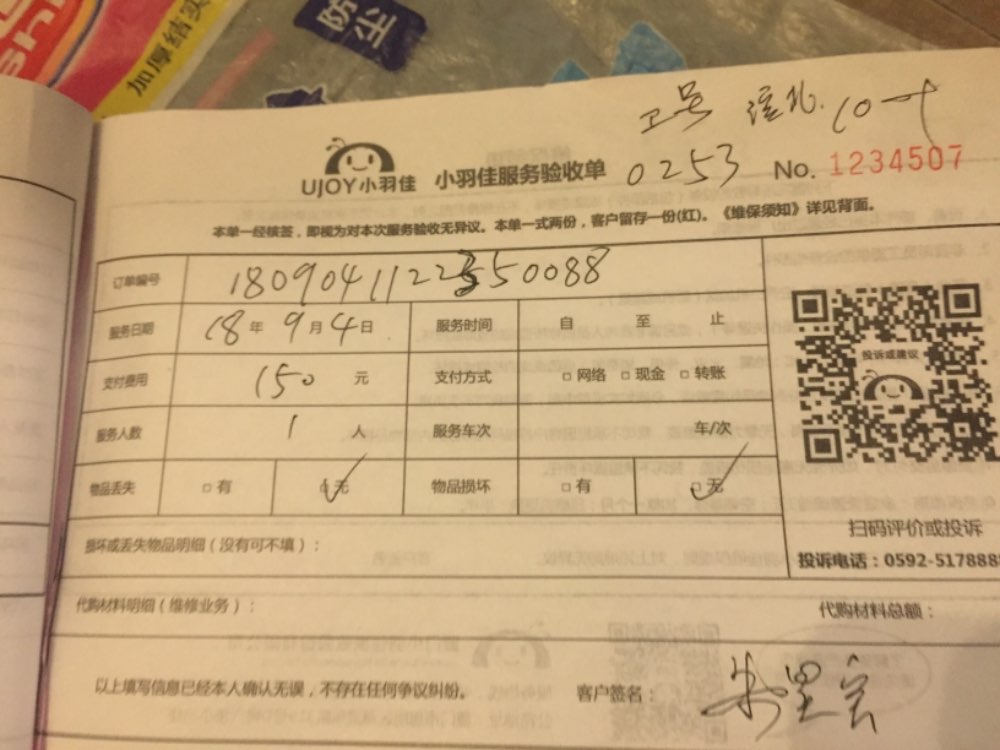 防尘
加厚结实
工号 滢北 10-4
UJOY小羽佳 小羽佳服务验收单 0253 No. 1234507
本单一经核签，即视为对本次服务验收无异议。本单一式两份，客户留存一份(红)。《维保须知》详见背面。
订单编号 1809041122550088
服务日期 18 年 9 月 4 日 服务时间 自 至 止
支付费用 150 元 支付方式 □ 网络 □ 现金 □ 转账
服务人数 1 人 服务车次 车/次
物品丢失 □ 有 □ 无 ✓ 物品损坏 □ 有 □ 无 ✓
投诉或建议
扫码评价或投诉
投诉电话：0592-5178888
损坏或丢失物品明细（没有可不填）：
代购材料明细（维修业务）： 代购材料总额：
以上填写信息已经本人确认无误，不存在任何争议纠纷。 客户签名：